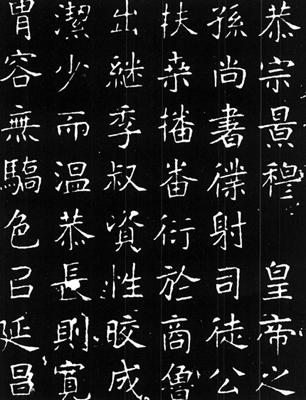 恭宗景穆 皇帝之
孫尚書僕射司徒公
扶桒播番衍於商魯
出繼季叔資性晈成
潔少而温恭長則寬
胃容無驕色㠯延昌